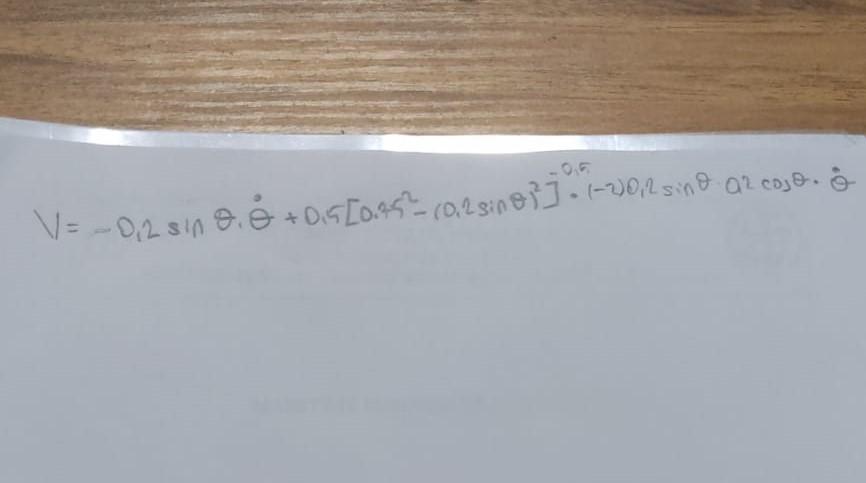 V = -0,2 sin θ. θ̇ + 0,5[0.75² - (0,2 sin θ)²]^-0,5 · (-2)0,2 sin θ 0,2 cos θ · θ̇